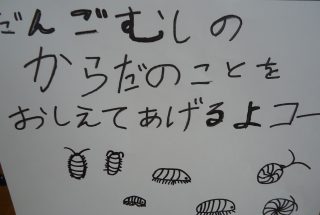 だんごむしの
からだのことを
おしえてあげるよコー